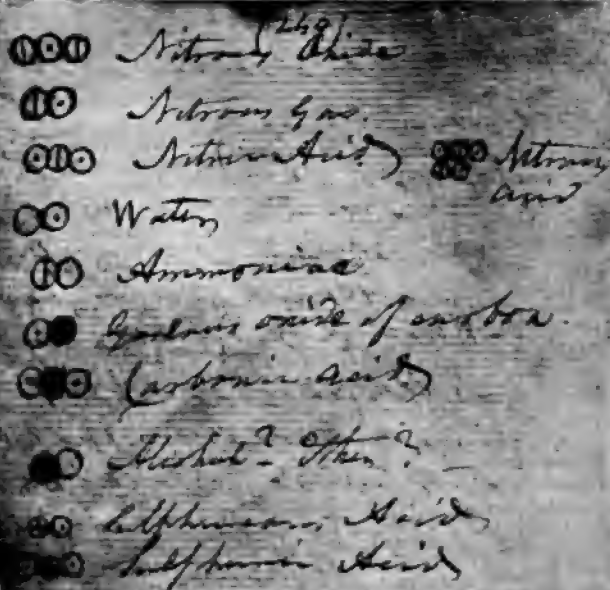 (249)
Nitrous Oxide
Nitrous Gas.
Nitric Acid
Nitrous
acid
Water
Ammoniac
Gaseous oxide of carbon.
Carbonic acid
Alcohol? Ether?
Sulphureous Acid
Sulphuric Acid